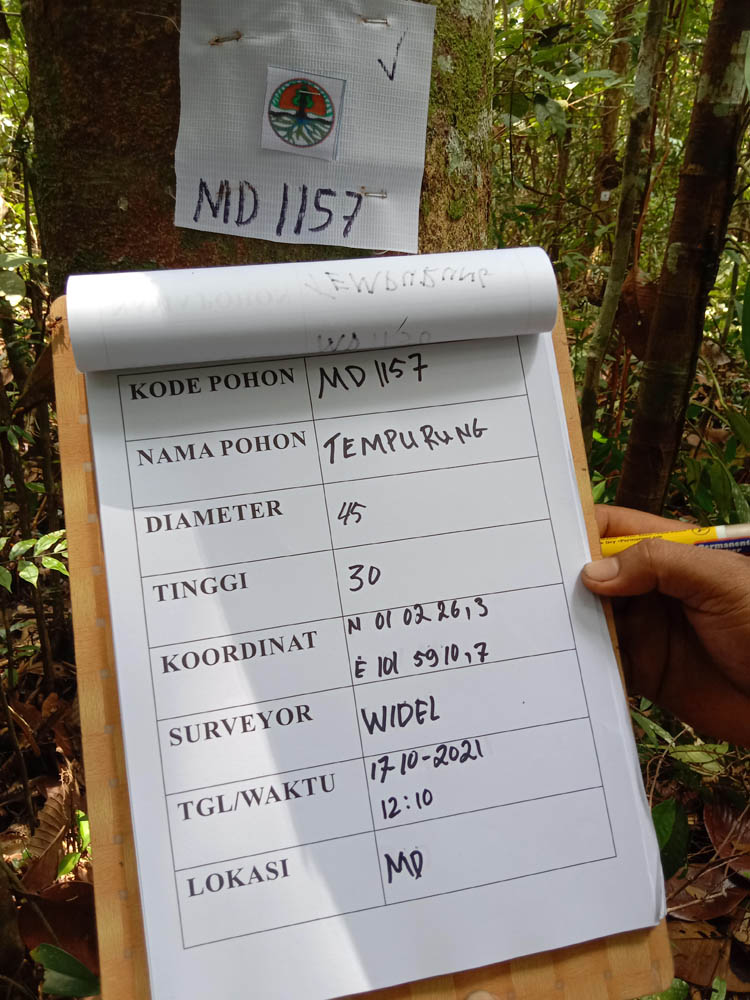 MD 1157
KODE POHON MD 1157
NAMA POHON TEMPURUNG
DIAMETER 45
TINGGI 30
KOORDINAT N 01 02 26,3
E 101 59 10,7
SURVEYOR WIDEL
TGL/WAKTU 17 10-2021
12:10
LOKASI MD
Permanent